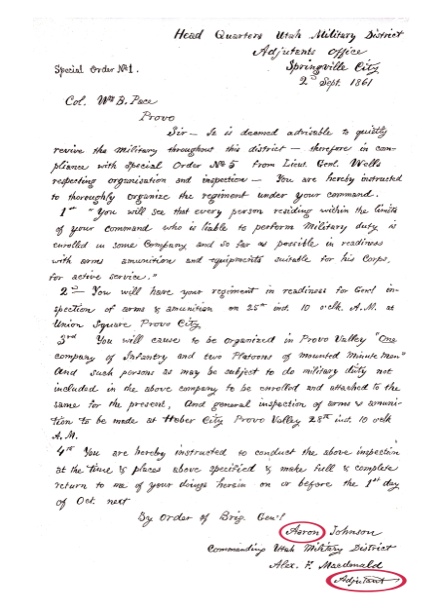 Head Quarters Utah Military District
Adjutants Office
Special Order No 1.
Springville City
2d Sept. 1861
Col. Wm B. Pace
Provo
Sir — It is deamed advisable to quietly
revive the Military throughout this district — therefore in com-
pliance with Special Order No 5 from Lieut. Genl. Wells
respecting organisation and inspection — You are hereby instructed
to thoroughly organize the regiment under your command.
1st "You will see that every person residing within the limits
of your command who is liable to perform Military duty is
enrolled in some Company and so far as possible in readiness
with arms amunition and equipments suitable for his Corps,
for active service."
2nd — You will have your regiment in readiness for Genl in-
spection of arms & amunition on 25th inst. 10 oclk A.M. at
Union Square Provo City.
3rd You will cause to be organized in Provo Valley "One
company of Infantry and two Platoons of mounted Minute Men"
And such persons as may be subject to do military duty not
included in the above company to be enrolled and attached to the
same for the present, And general inspection of arms & amuni-
tion to be made at Heber City Provo Valley 28th inst. 10 oclk
A.M.
4th You are hereby instructed to conduct the above inspection
at the time & places above specified & make full & complete
return to me of your doings herein on or before the 1st day
of Oct. next
By Order of Brig. Genl
Aaron Johnson
Commanding Utah Military District
Alex. F. Macdonald
Adjutant